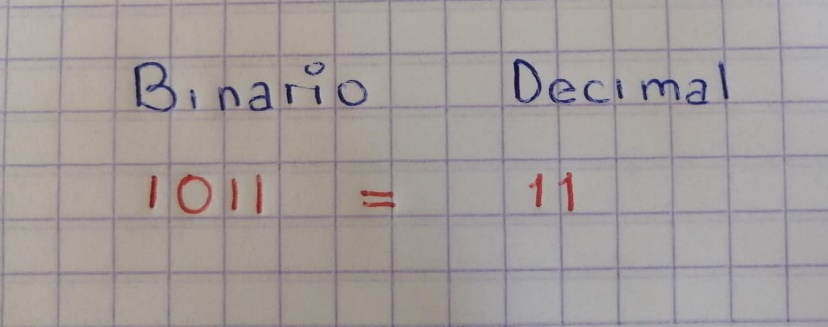 Binario Decimal
1011 = 11